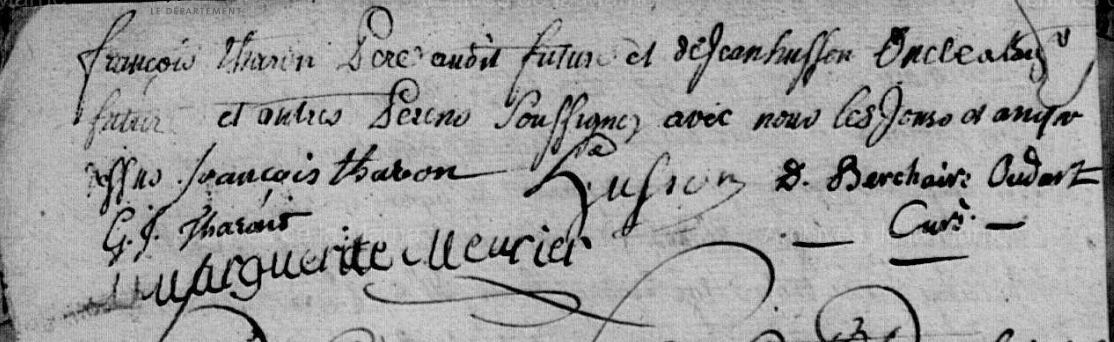 LE DÉPARTEMENT
françois tharon Pere audit future et de Jean husson Oncle audit
futur et autres Perens Soussignez avec nous les Jours et an que
dessus françois tharon Husson D. Berchaire Oudart
G. J. Tharont Curé
Marguerite Meurier